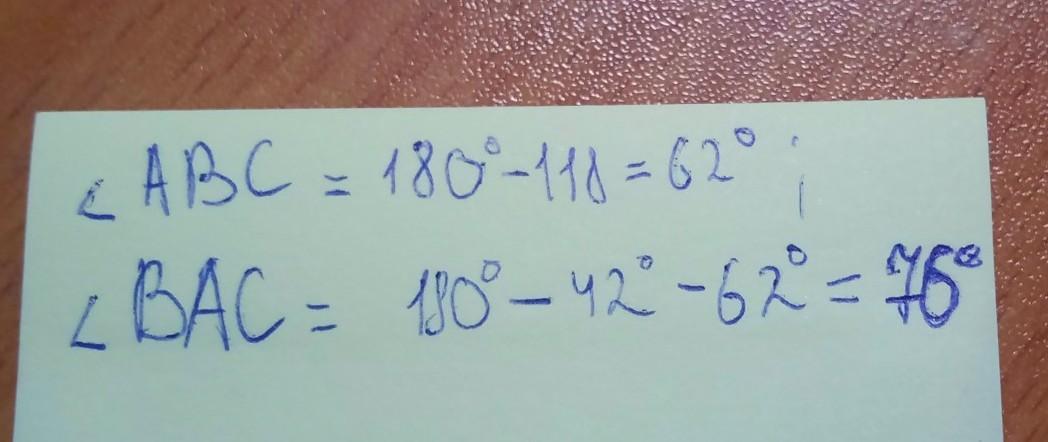 ∠ABC = 180° - 118 = 62° ;
∠BAC = 180° - 42° - 62° = 76°